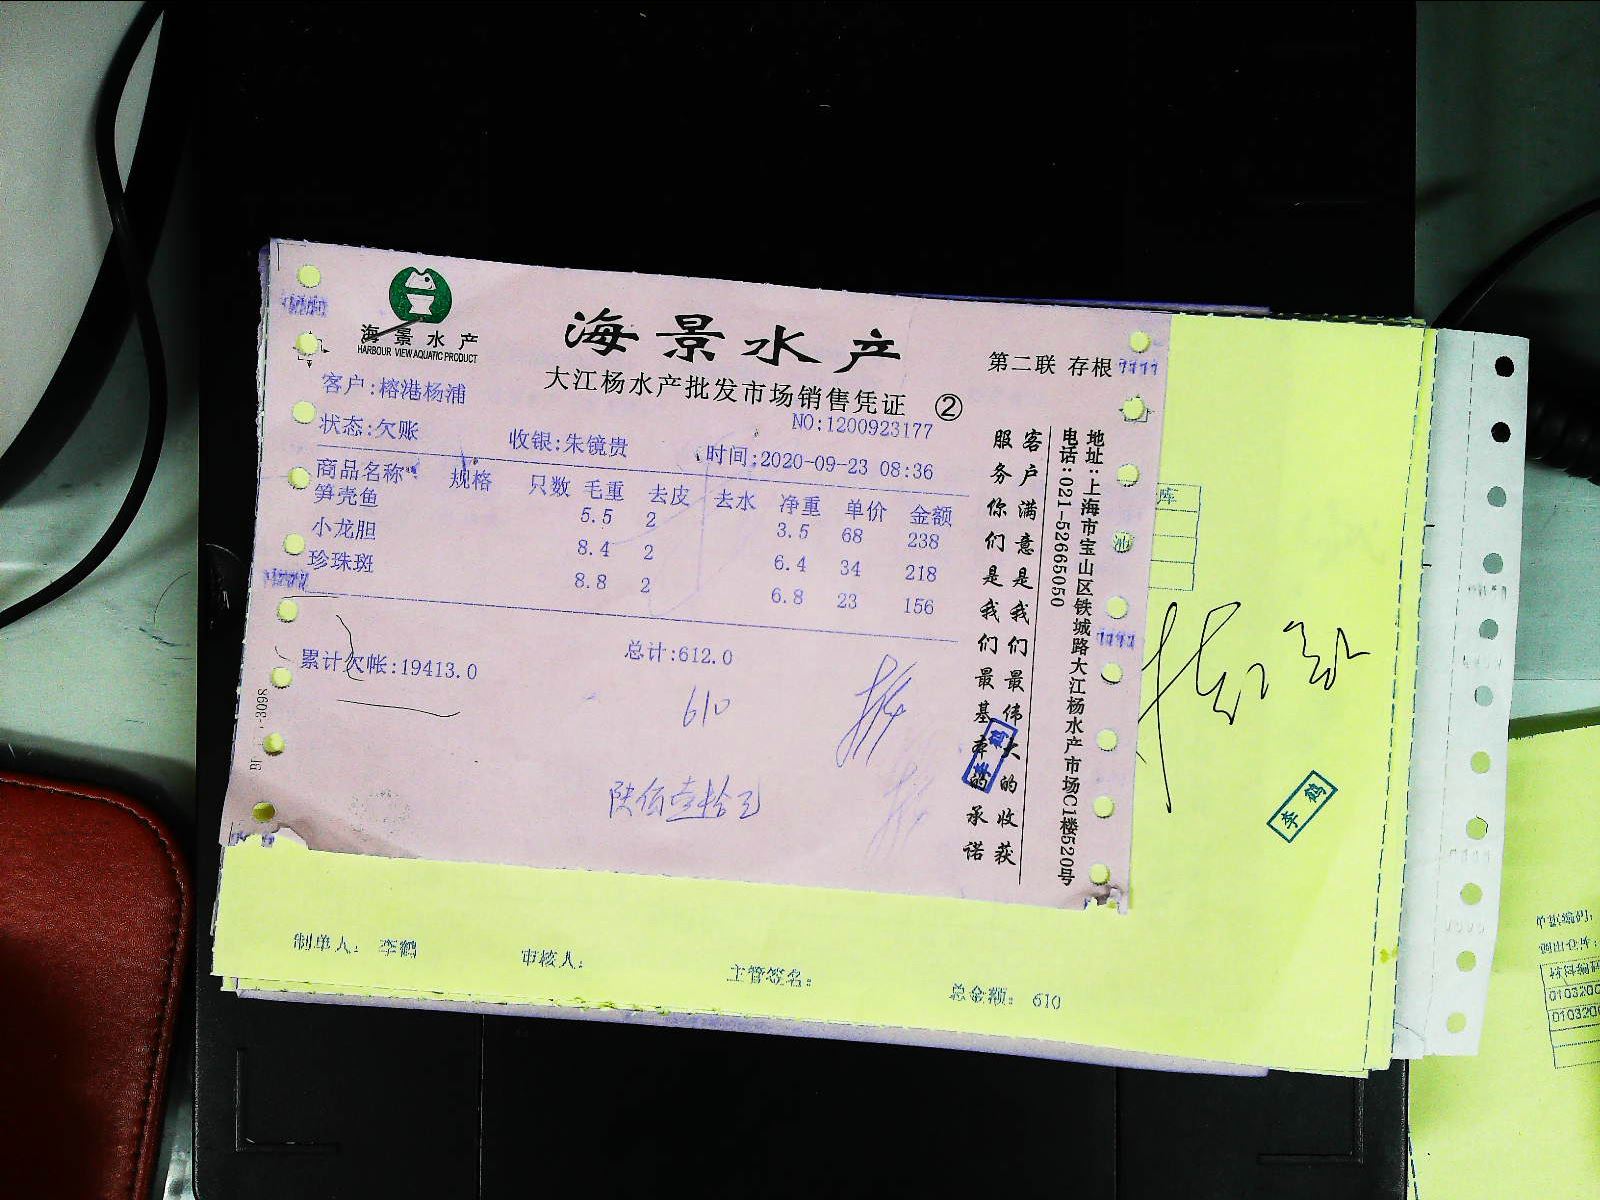 海景水产
HARBOUR VIEW AQUATIC PRODUCT
海景水产
大江杨水产批发市场销售凭证 ②
第二联 存根
客户:榕港杨浦
NO:1200923177
状态:欠账 收银:朱镜贵 时间:2020-09-23 08:36
商品名称 规格 只数 毛重 去皮 去水 净重 单价 金额
笋壳鱼 5.5 2 3.5 68 238
小龙胆 8.4 2 6.4 34 218
珍珠斑 8.8 2 6.8 23 156
累计欠帐:19413.0 总计:612.0
610
陆佰壹拾元
客户满意是我们最伟大的收获
服务你们是我们最基本的承诺
地址:上海市宝山区铁城路大江杨水产市场C1楼520号
电话:021-52665050
李鹤
李鹤
库
制单人: 李鹤 审核人: 主管签名: 总金额: 610